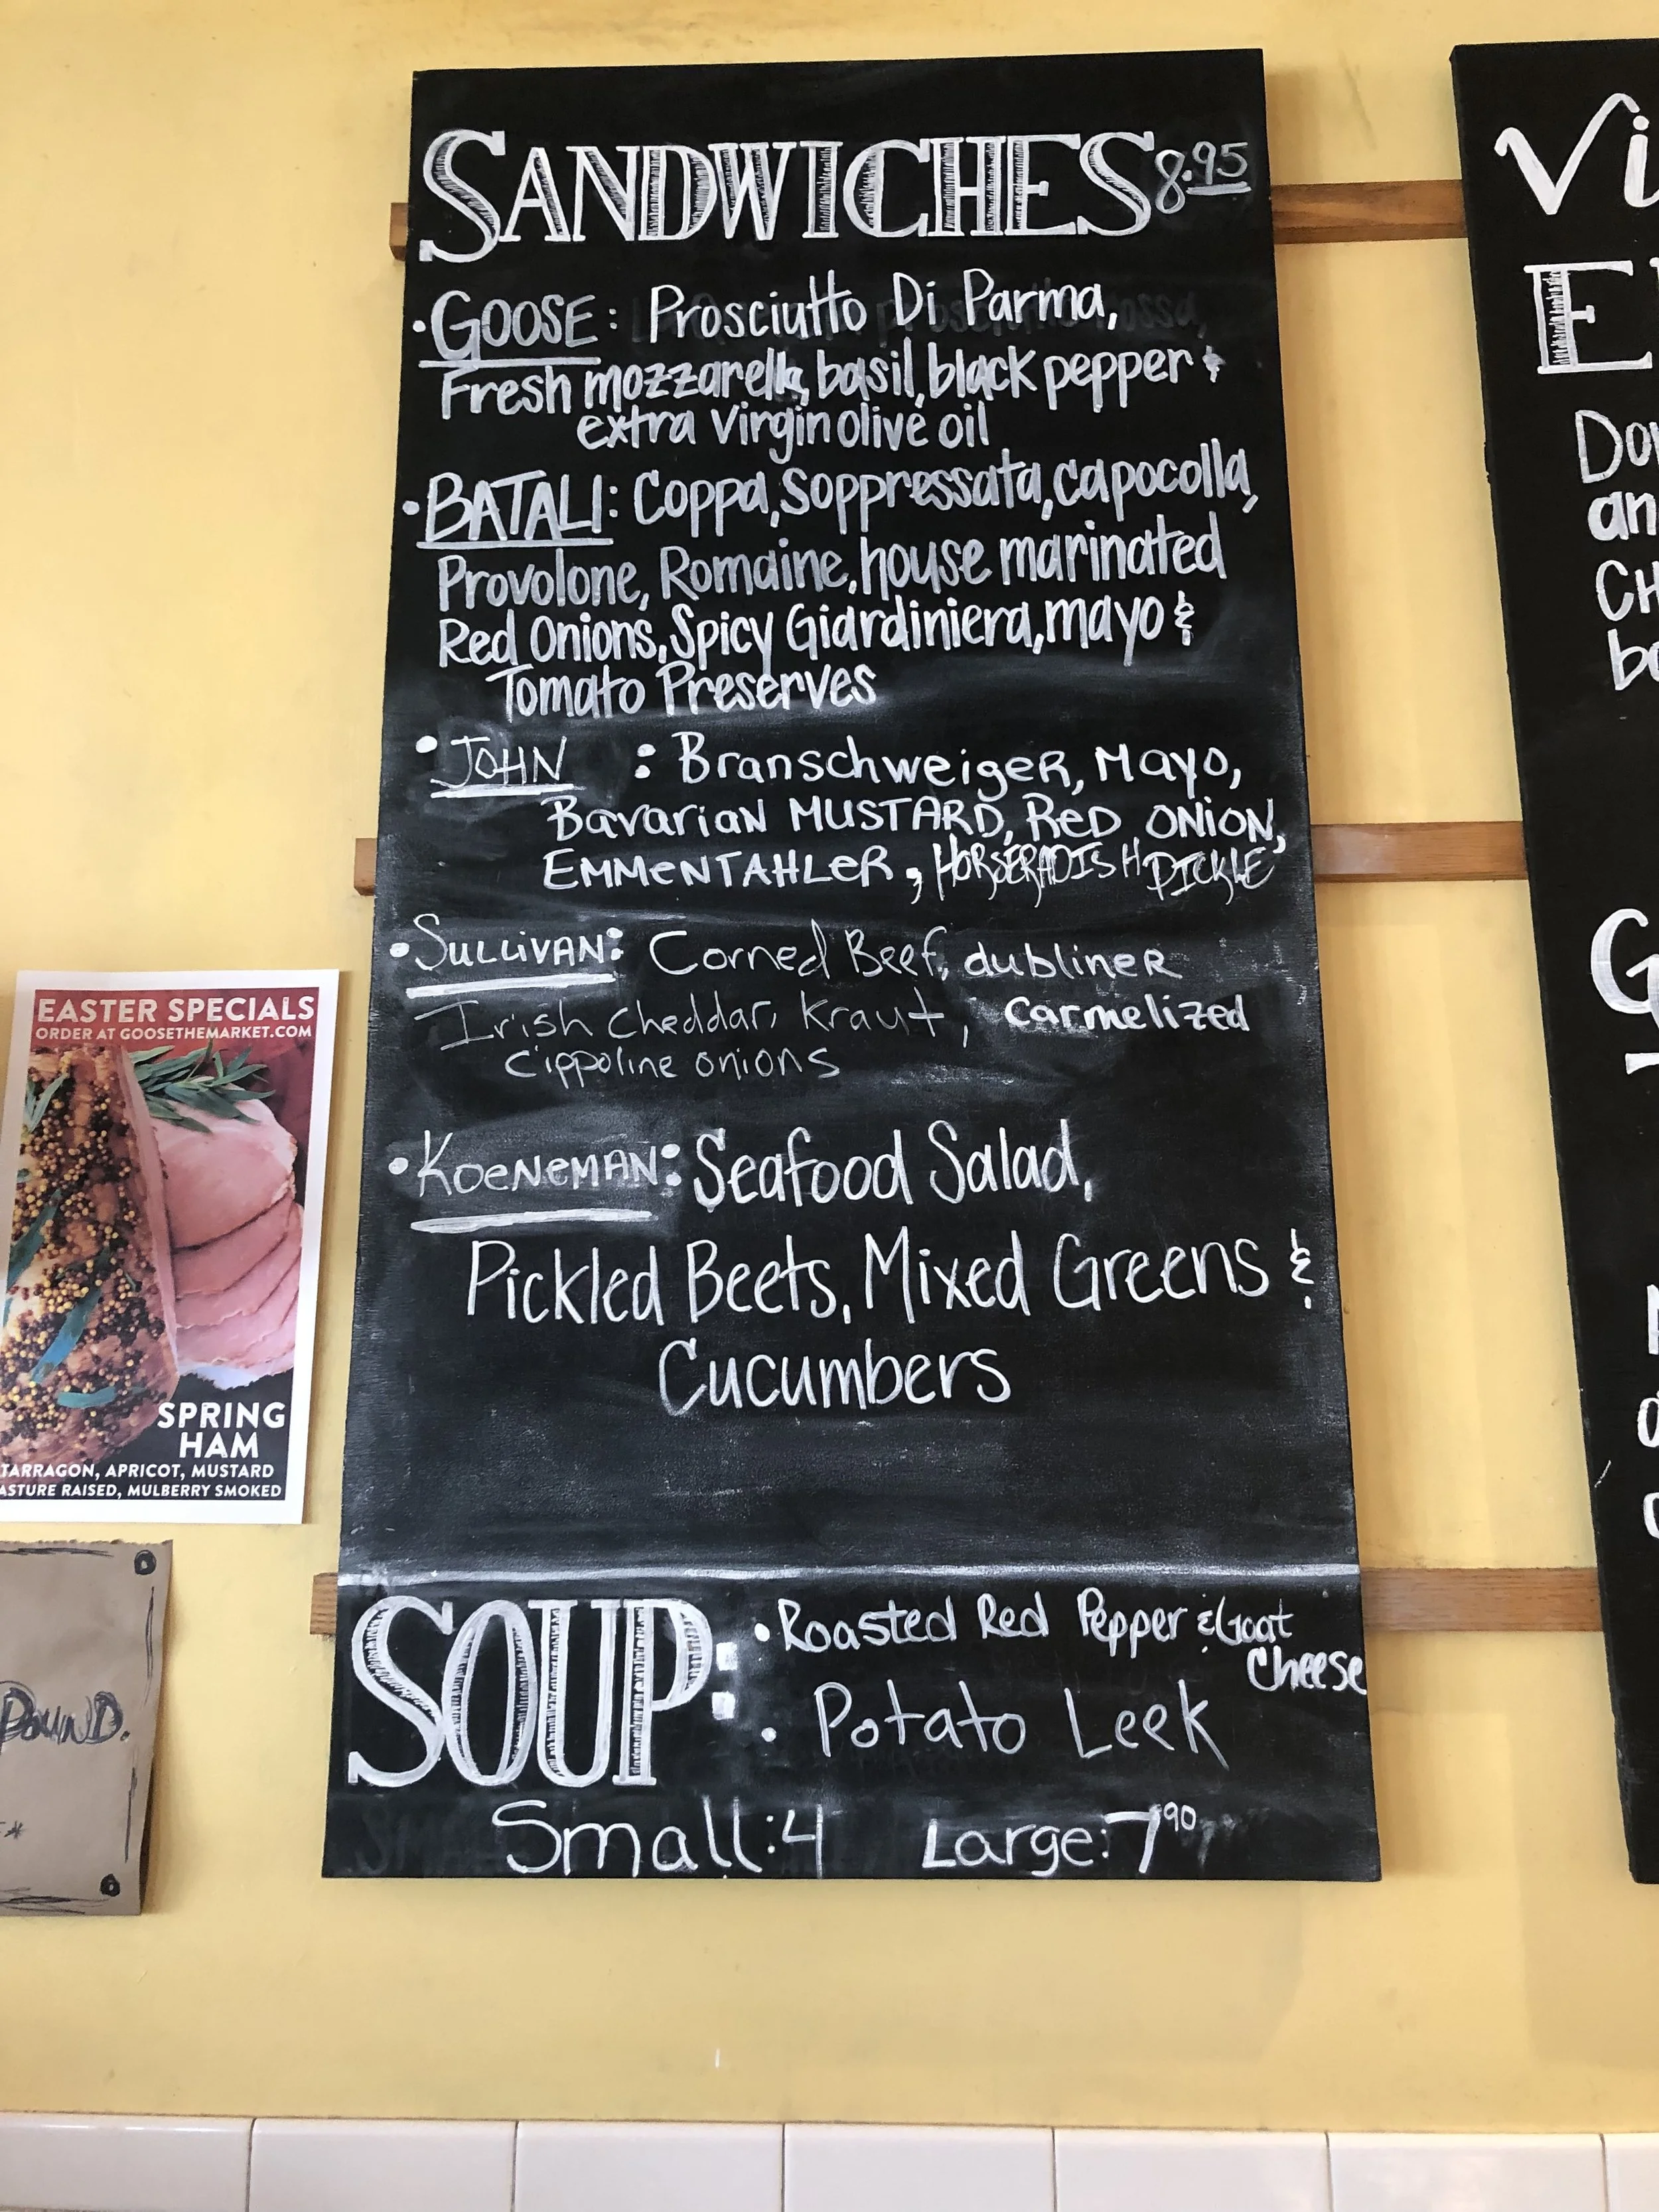 SANDWICHES 8.95
• GOOSE: Prosciutto Di Parma,
Fresh mozzarella, basil, black pepper &
extra virgin olive oil
• BATALI: Coppa, Soppressata, capocolla,
Provolone, Romaine, house marinated
Red Onions, Spicy Giardiniera, mayo &
Tomato Preserves
• JOHN : Branschweiger, Mayo,
Bavarian MUSTARD, Red ONiON,
EMMeNTAHLeR, HORSERADISH PICKLE
• SULLiVAN: Corned Beef, dubliner
Irish cheddar, Kraut, Carmelized
Cippoline onions
• KoeNeMAN: Seafood Salad,
Pickled Beets, Mixed Greens &
Cucumbers
SOUP:
• Roasted Red Pepper & Goat
Cheese
• Potato Leek
Small: 4 Large: 7.90
EASTER SPECIALS
ORDER AT GOOSETHEMARKET.COM
SPRING
HAM
TARRAGON, APRICOT, MUSTARD
ASTURE RAISED, MULBERRY SMOKED
POUND.
Vi
E
Do
an
CH
bo
G